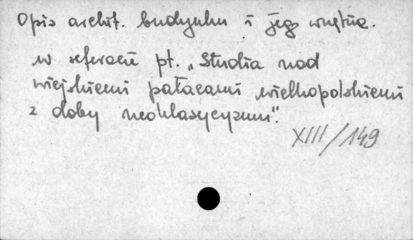 Opis archit. budynku i jego wnętrza.
w referacie pt. „Studia nad
wiejskiemi pałacami wielkopolskiemi
z doby neoklasycyzmu".
XIII/149